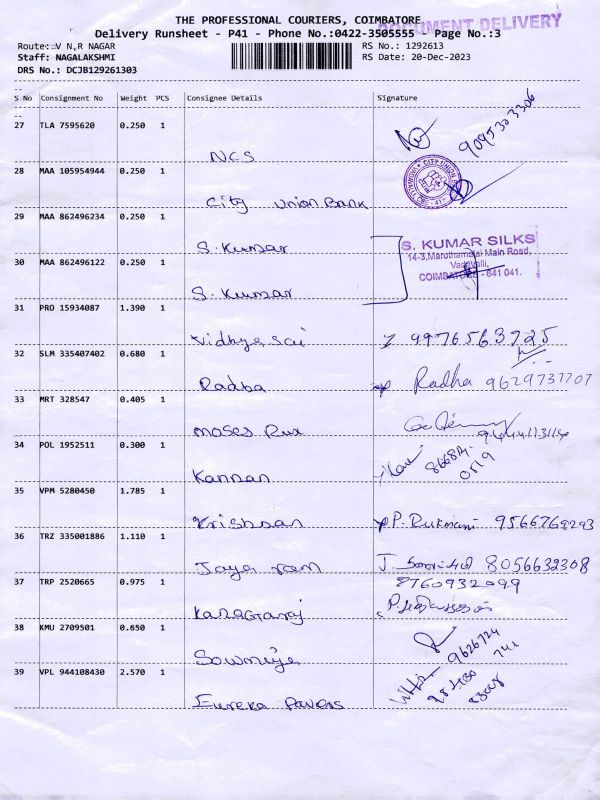 THE PROFESSIONAL COURIERS, COIMBATORE
DOCUMENT DELIVERY
Delivery Runsheet - P41 - Phone No.:0422-3505555 - Page No.:3
Route: V N,R NAGAR
RS No.: 1292613
Staff: NAGALAKSHMI
RS Date: 20-Dec-2023
DRS No.: DCJB129261303
S No Consignment No Weight PCS Consignee Details Signature
27 TLA 7595620 0.250 1
NCS
9095303306
28 MAA 105954944 0.250 1
City Union Bank
CITY UNION
29 MAA 862496234 0.250 1
S. Kumar
S. KUMAR SILKS
14-3,Maruthamalai Main Road,
Vadavalli,
COIMBATORE - 641 041.
30 MAA 862496122 0.250 1
S. Kumar
31 PRO 15934087 1.390 1
Vidhya sai 9976563725
32 SLM 335407402 0.680 1
Radha Radha 9629737707
33 MRT 328547 0.405 1
Moses Rux
34 POL 1952511 0.300 1
Kannan
35 VPM 5280450 1.785 1
Krishnan P. Rukmani 9566769293
36 TRZ 335001886 1.110 1
Jaya ram J. 8056632308
37 TRP 2520665 0.975 1
8760932099
38 KMU 2709501 0.650 1
Sowmiya 9626724
741
39 VPL 944108430 2.570 1
Eureka Pavers